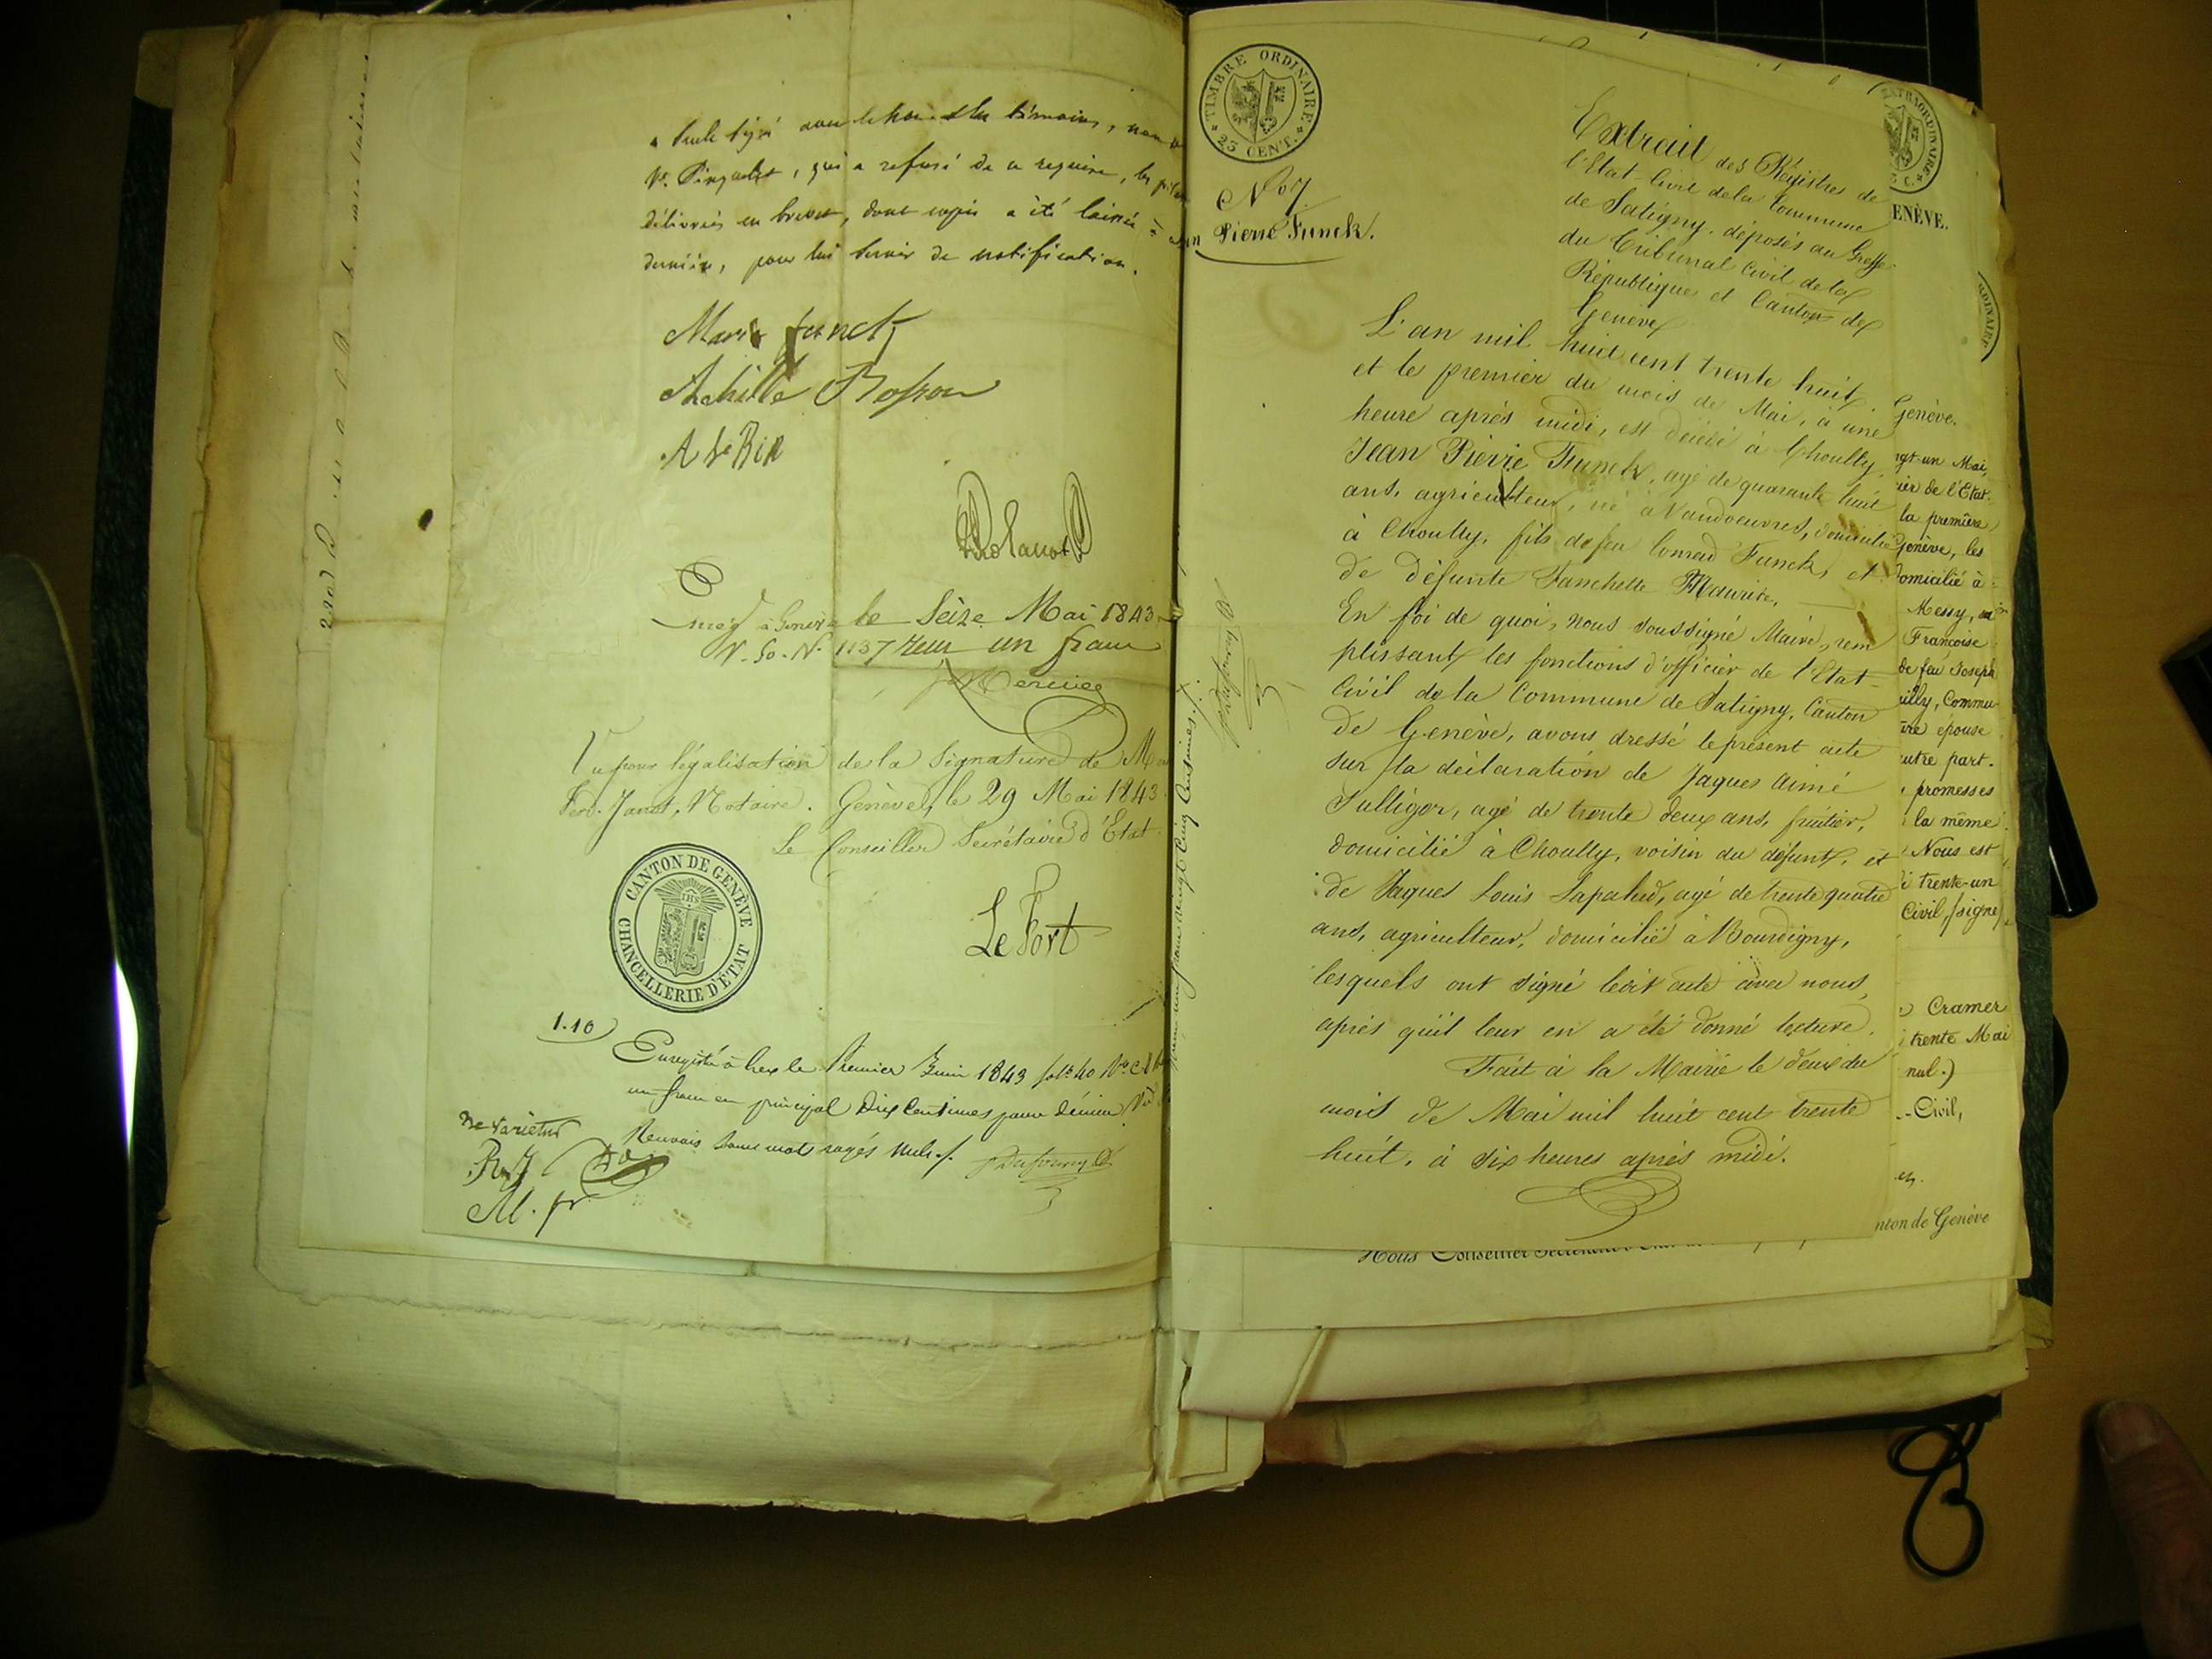 a seule signé avec
Ve. Pinget, qui a refusé de ce requise, les
délivrées en brevet, dont copie a été laissée à
dernière, pour lui servir de notification.
Marie funck
Achille Bosson
Enreg à Genève le Seize Mai 1843
V. 50. N. 1137 reçu un franc
Mercier
Vu pour légalisation de la Signature de
Ferd. Janot, Notaire. Genève, le 29 Mai 1843
Le Conseiller Secrétaire d'Etat
CANTON DE GENÈVE
CHANCELLERIE D'ETAT
Le Fort
1.10
Enregistré à Gex le Premier Juin 1843 fol. 40
un franc en principal Dix Centimes pour décime
Renvois Sans mots rayés nuls
Dufourny
Ne Varietur
M. fr
TIMBRE ORDINAIRE
25 CENT.
No 7.
Pierre Funck.
Extrait des Régistres de
l'Etat-Civil de la Commune
de Satigny, déposés au Greffe
du Tribunal Civil de la
République et Canton de
Genève
L'an mil huit cent trente huit
et le premier du mois de Mai, à une
heure après midi, est décédé à Choully
Jean Pierre Funck, agé de quarante huit
ans, agriculteur, né à Vandoeuvres, domicilié
à Choully, fils de feu Conrad Funck, et
de défunte Fanchette Maurice.
En foi de quoi, nous soussigné Maire, rem
plissant les fonctions d'officier de l'Etat-
Civil de la Commune de Satigny, Canton
de Genève, avons dressé le présent acte
sur la déclaration de Jaques Aimé
Sulliger, agé de trente deux ans, fruitier,
domicilié à Choully, voisin du défunt, et
de Jaques Louis Lapalud, agé de trente quatre
ans, agriculteur, domicilié à Bourdigny,
lesquels ont signé ledit acte avec nous,
après qu'il leur en a été donné lecture.
Fait à la Mairie le deux du
mois de Mai mil huit cent trente
huit, à six heures après midi.
EXTRAORDINAIRE
ENÈVE.
DINAIRE
Genève.
ngt-un Mai,
ier de l'Etat-
la première
Genève, les
domicilié à
Messy,
Françoise
de feu Joseph
uilly, Commu
ire épouse
utre part.
promesses
la même
Nous est
i trente-un
Civil, (signé)
Cramer
trente Mai
nul.)
Civil,
nton de Genève
Nous Conseiller